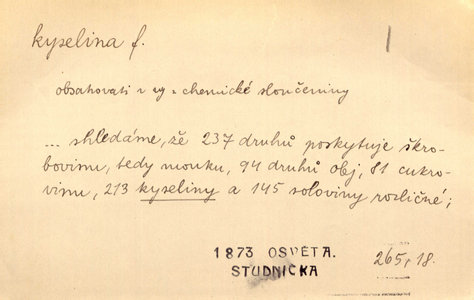 kyselina f.
1
obsahovati v sg. chemické sloučeniny
... shledáme, že 237 druhů poskytuje škro-
bovinu, tedy mouku, 94 druhů obj, 81 cukro-
vinu, 213 kyseliny a 145 soloviny rozličné;
1873 OSVĚTA.
STUDNIČKA
265, 18.